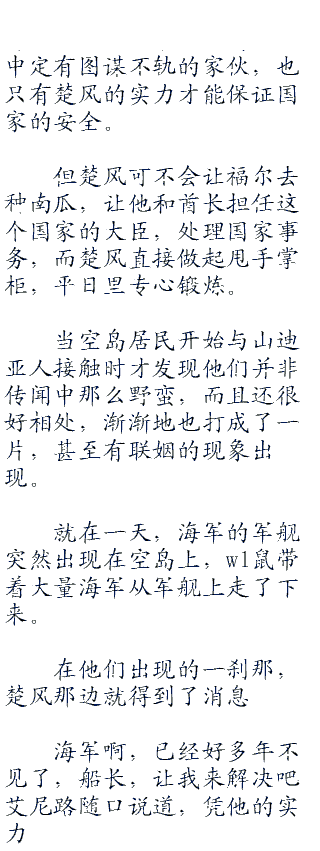 中定有图谋不轨的家伙，也
只有楚风的实力才能保证国
家的安全。
但楚风可不会让福尔去
种南瓜，让他和酋长担任这
个国家的大臣，处理国家事
务，而楚风直接做起甩手掌
柜，平日里专心锻炼。
当空岛居民开始与山迪
亚人接触时才发现他们并非
传闻中那么野蛮，而且还很
好相处，渐渐地也打成了一
片，甚至有联姻的现象出
现。
就在一天，海军的军舰
突然出现在空岛上，w1鼠带
着大量海军从军舰上走了下
来。
在他们出现的一刹那，
楚风那边就得到了消息
海军啊，已经好多年不
见了，船长，让我来解决吧
艾尼路随口说道，凭他的实
力